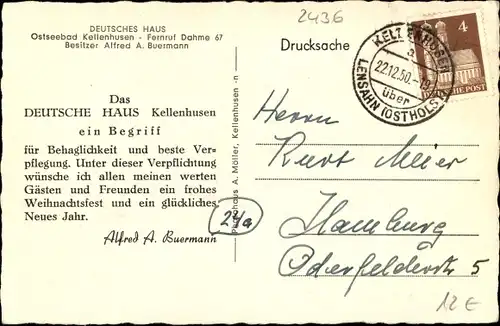 2436
DEUTSCHES HAUS
Ostseebad Kellenhusen - Fernruf Dahme 67
Besitzer Alfred A. Buermann
Drucksache
KELLENHUSEN
a
22.12.50
über
LENSAHN (OSTHOLST)
4
POST
Das
DEUTSCHE HAUS Kellenhusen
ein Begriff
für Behaglichkeit und beste Ver=
pflegung. Unter dieser Verpflichtung
wünsche ich allen meinen werten
Gästen und Freunden ein frohes
Weihnachtsfest und ein glückliches
Neues Jahr.
Alfred A. Buermann
A. Möller, Kellenhusen
24a
Herrn
Kurt Meier
Hamburg
Oderfelderstr 5
12 €